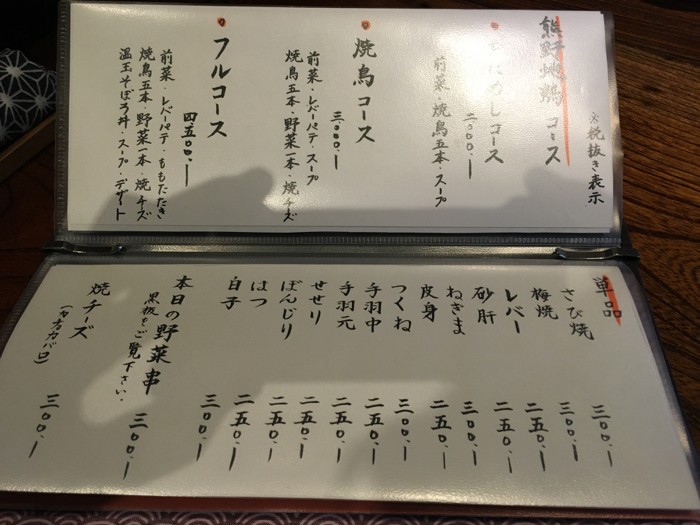 ※税抜き表示
熊野地鶏コース
ためしコース
二〇〇〇.-
前菜・焼鳥五本・スープ
焼鳥コース
三〇〇〇.-
前菜・レバーパテ・スープ
焼鳥五本・野菜一本・焼チーズ
フルコース
四五〇〇.-
前菜・レバーパテ・ももたたき
焼鳥五本・野菜一本・焼チーズ
温玉そぼろ丼・スープ・デザート
単品
さび焼 三〇〇.-
梅焼 三〇〇.-
レバー 二五〇.-
砂肝 二五〇.-
ねぎま 三〇〇.-
皮身 二五〇.-
つくね 三〇〇.-
手羽中 二五〇.-
手羽元 二五〇.-
せせり 二五〇.-
ぼんじり 二五〇.-
はつ 二五〇.-
白子 三〇〇.-
本日の野菜串 三〇〇.-
黒板をご覧下さい。
焼チーズ 三〇〇.-
(カチカバロ)